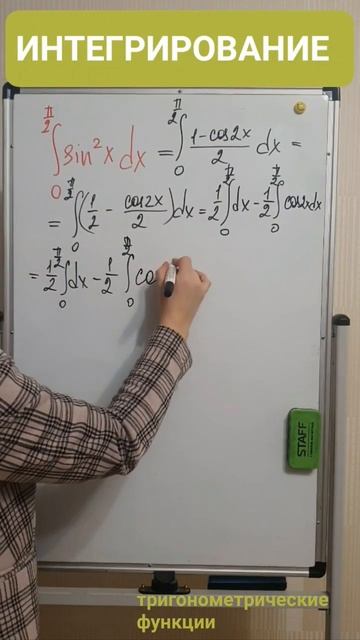 ИНТЕГРИРОВАНИЕ
∫₀^(π/2) sin²x dx = ∫₀^(π/2) (1-cos2x)/2 dx =
= ∫₀^(π/2) (1/2 - cos2x/2) dx = 1/2 ∫₀^(π/2) dx - 1/2 ∫₀^(π/2) cos2xdx
= 1/2 ∫₀^(π/2) dx - 1/2 ∫₀^(π/2) co
STAFF
тригонометрические
функции